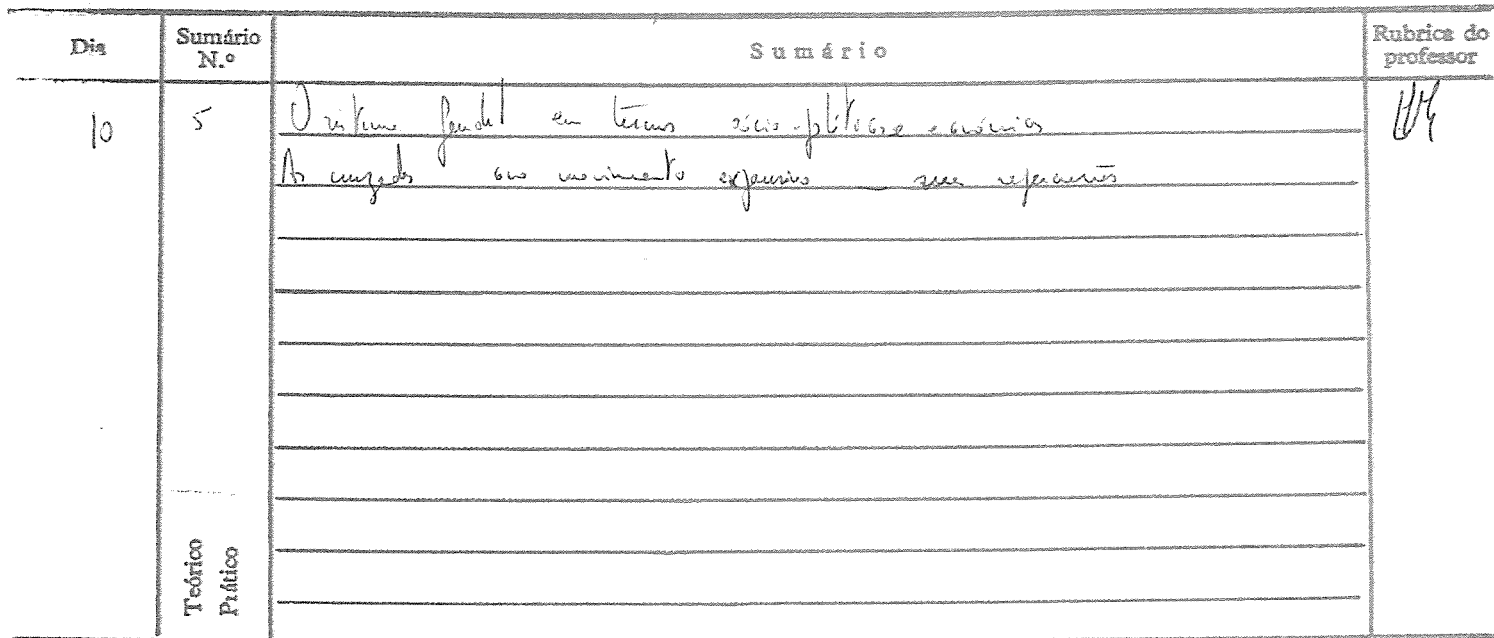 Dia
Sumário N.º
Sumário
Rubrica do professor
10
5
O sistema feudal em termos sócio-políticos e económicos
As cruzadas como movimento expansivo _ suas repercussões
Teórico
Prático